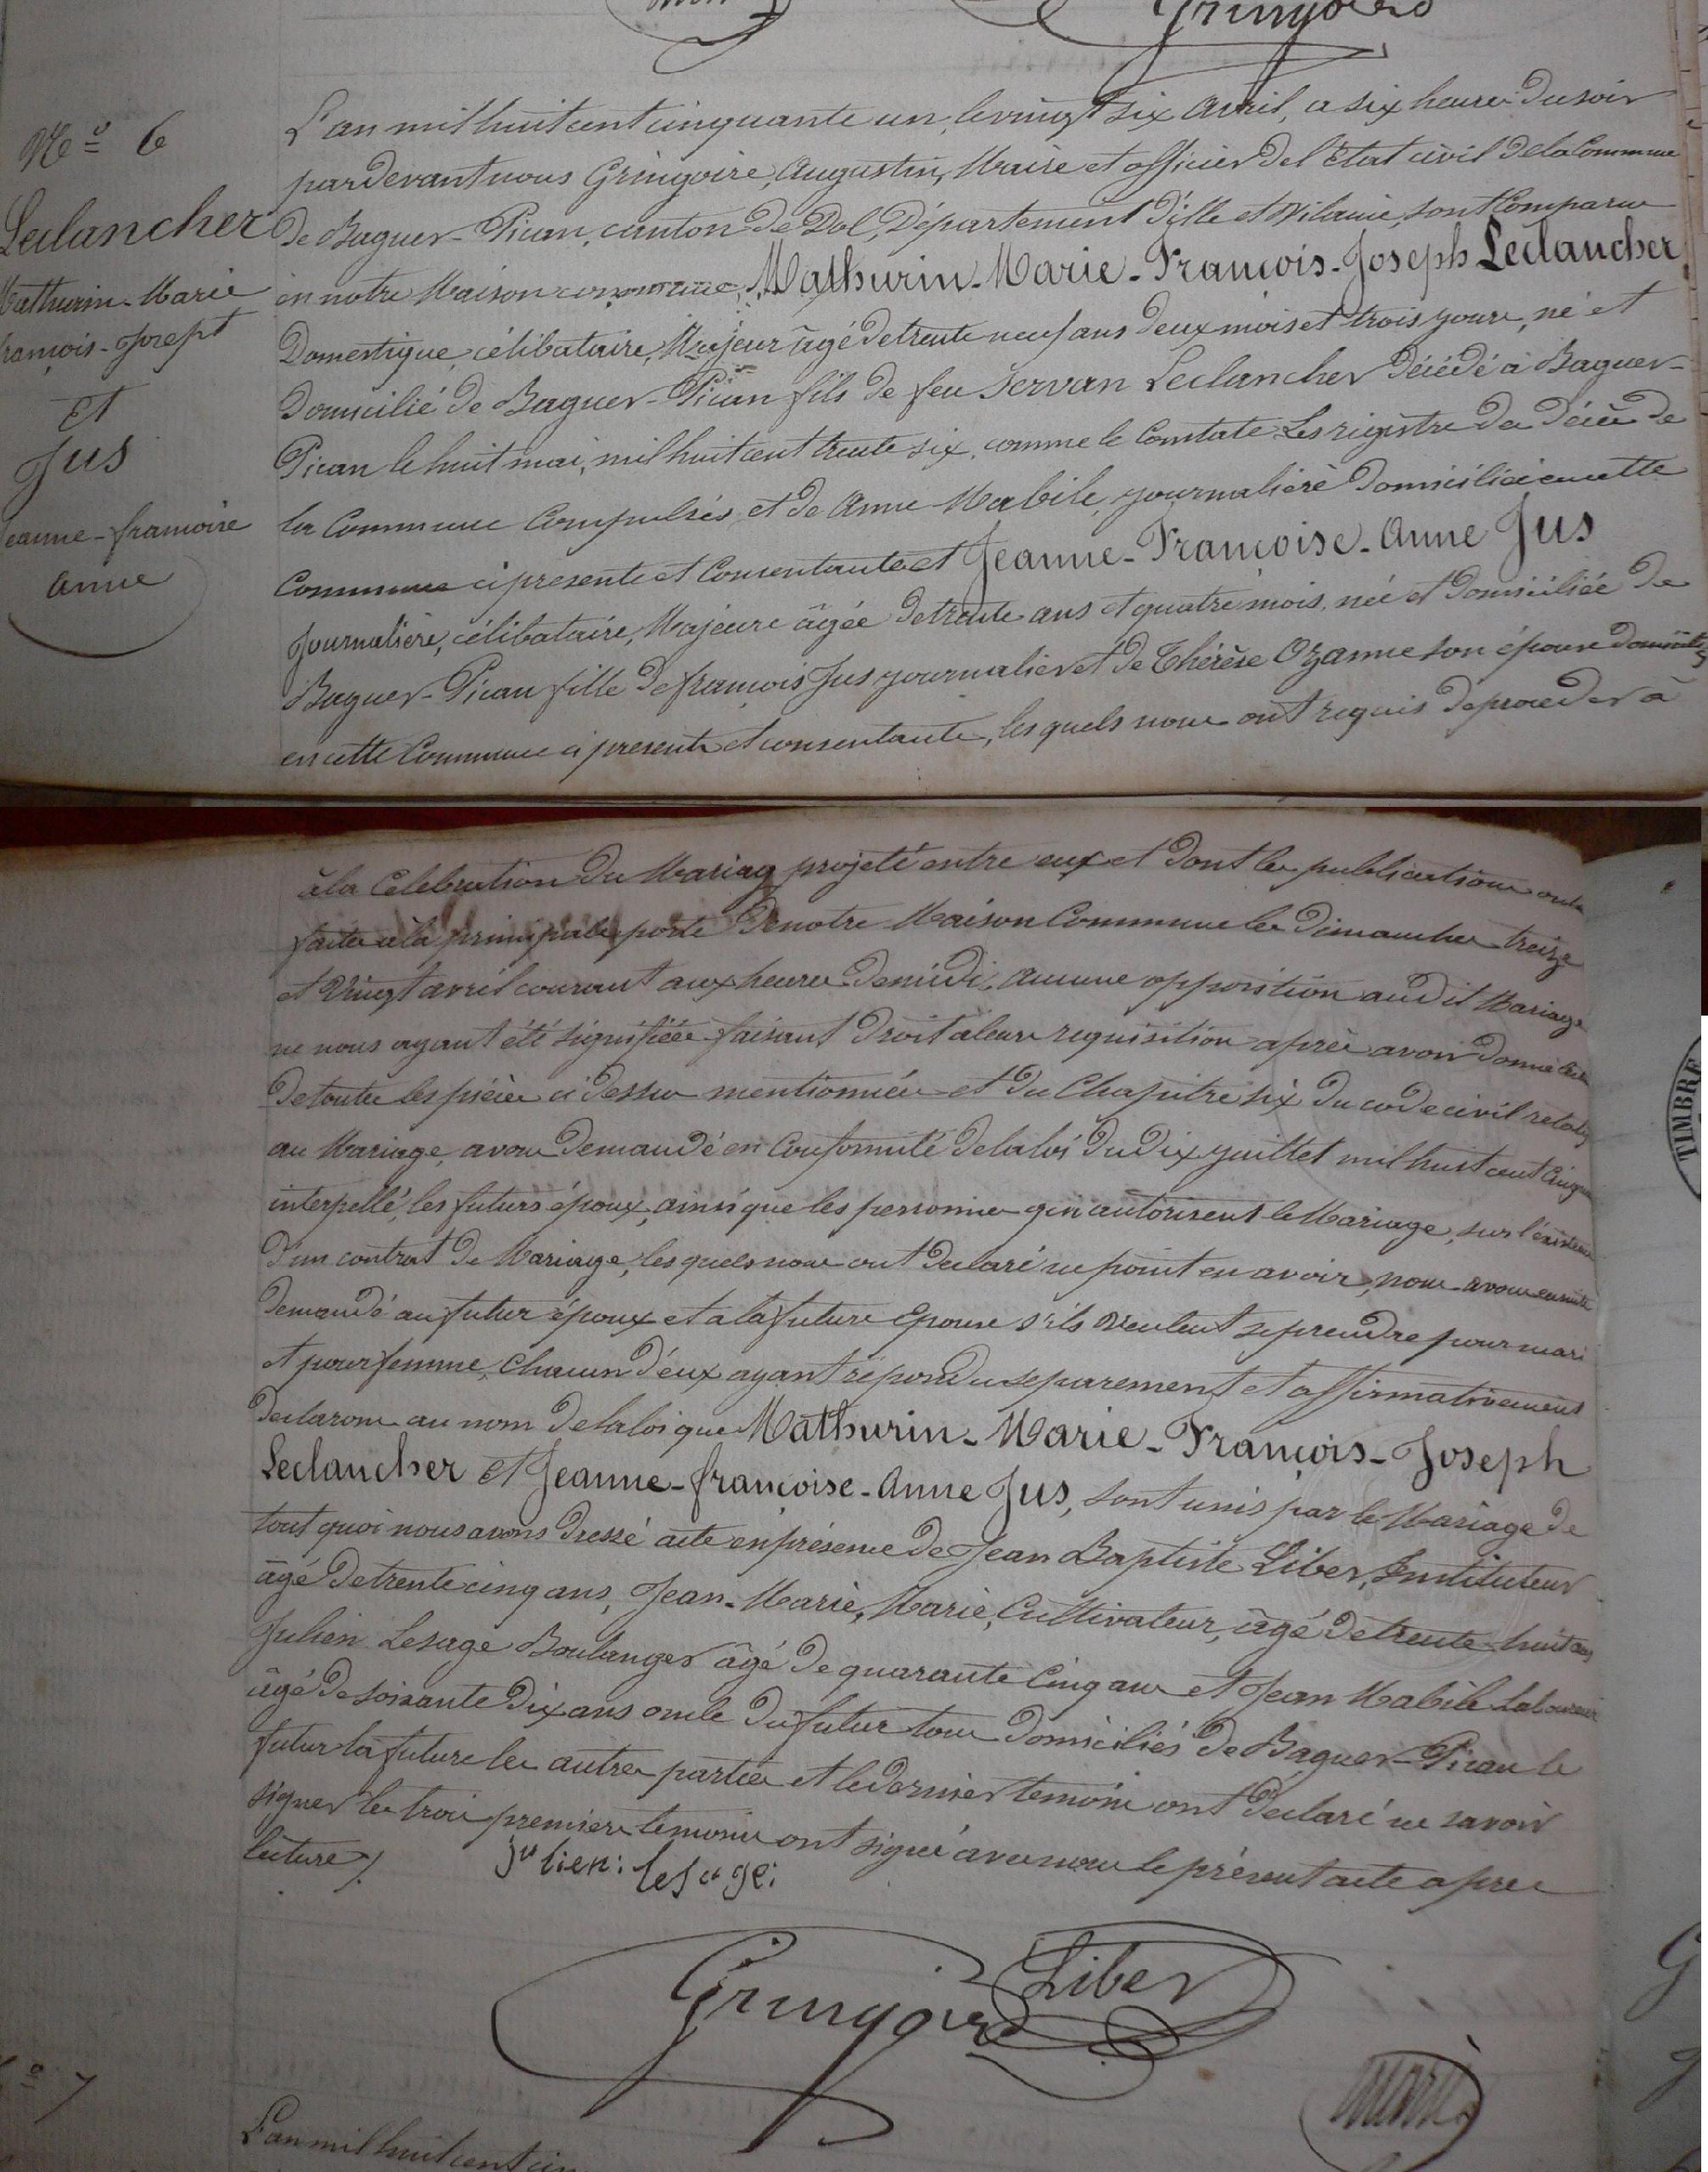 Gringoire
N.º 6
Leclancher
Mathurin-Marie
François-Josept
Et
Jus
Jeanne-françoise
Anne
L'an mil huit cent cinquante un, le vingt six avril, a six heures du soir
par devant nous Gringoire, Augustin, Maire et officier de l'Etat civil de la Commune
de Baguer-Pican, canton de Dol, Département d'ille et vilaine, sont comparus
en notre Maison commune, Mathurin-Marie-François-Joseph Leclancher
Domestique, célibataire, Majeur âgé de trente neuf ans deux mois et trois jours, né et
domicilié de Baguer-Pican fils de feu Servan Leclancher décédé à Baguer-
Pican le huit mai, mil huit cent trente six, comme le Constate les registre des décès de
la Commune Compulsés, et de Anne Mabile, journalière domiciliée en cette
Commune ci présente et Consentante et Jeanne-Françoise-Anne Jus
Journalière, célibataire, Majeure âgée de trente ans et quatre mois, née et domiciliée de
Baguer-Pican fille de françois Jus journalier et de Thérèse Ozanne son épouse domiciliés
en cette Commune ci présente et consentante, les quels nous ont requis de procéder à
à la Célébration du Mariag projeté entre eux et dont les publications ont été
faites à la principale porte de notre Maison Commune les dimanches treize
et vingt avril courant aux heures de midi, aucune opposition audit Mariage
ne nous ayant été signifiée faisant droit à leurs requisition après avoir donné lecture
de toutes les pièces ci dessus mentionnées et du Chapitre six du code civil relatif
au Mariage, avons demandé en Conformité de la loi du dix juillet mil huit cent cinquante
interpellé, les futurs époux, ainsi que les personnes qui autorisent le Mariage, sur l'existence
d'un contrat de Mariage, les quels nous ont déclaré ne point en avoir, nous avons ensuite
demandé au futur époux et a la future Epouse s'ils veulent se prendre pour mari
et pour femme, Chacun d'eux ayant répondu séparément et affirmativement
déclarons au nom de la loi que Mathurin-Marie-François-Joseph
Leclancher et Jeanne-françoise-Anne Jus, sont unis par le Mariage de
tout quoi nous avons dressé acte en présence de Jean Baptiste Liber, Instituteur
âgé de trente cinq ans, Jean-Marie, Marie, Cultivateur, âgé de trente-huit ans
Julien Lesage Boulanger âgé de quarante Cinq ans et Jean Mabile Laboureur
âgé de soixante dix ans oncle du futur tous domiciliés de Baguer-Pican le
futur la future les autres parties et le dernier temoin ont déclaré ne savoir
signer les trois premiers temoins ont signé avec nous le présent acte apres
lecture /.
julien : lesage :
Liber
Gringoire
marie
N.º 7
L'an mil huit cent cin
TIMBRE